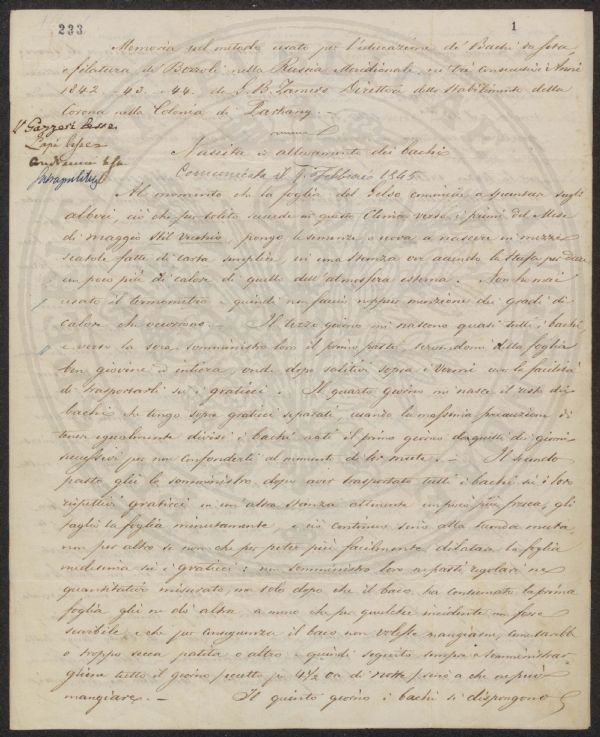 233
1
Memoria sul metodo usato per l'educazione de' Bachi da seta
e filatura de' Bozzoli nella Russia Meridionale, ne' trè consecutivi Anni
1842. -43. -44. da G. B. Direttore dello Stabilimento della
Corona nella Colonia di
Nascita e allevamento dei bachi
Comunicata il Febbraio 1845.
Al momento che la foglia del Gelso comincia a spuntare sugli
alberi, ciò che per solito succede in questo Clima verso i primi del Mese
di maggio Stil Vecchio, pongo le semenze o uova a nascere in mezze
scatole fatte di carta semplice, in una stanza ove accendo la stufa per dare
un poco più di calore di quello dell'atmosfera esterna. Non ho mai
usato il termometro e quindi non faccio neppur menzione dei gradi di
calore che occorrono. - Il terzo giorno mi nascono quasi tutti i bachi,
e verso la sera somministro loro il primo pasto, servendomi della foglia
ben giovine e intiera, onde dopo saliti sopra i vermi aver la facilità
di trasportarli su i graticci. - Il quarto giorno mi nasce il resto dei
bachi che tengo sopra graticci separati usando la massima precauzione di
tener egualmente divisi i bachi nati il primo giorno da quelli dei giorni
successivi per non confonderli al momento di lor mute. - Il secondo
pasto glie lo somministro dopo aver trasportato tutti i bachi su i loro
rispettivi graticci in un'altra stanza altmente un poco più fresca, gli
taglio la foglia minutamente e ciò continuo sino alla seconda muta,
non per altro se non che per poter più facilmente dilatare la foglia
medesima su i graticci: non somministro loro i pasti regolari ne
quantitativi misurati, ma solo dopo che il baco ha consumato la prima
foglia gli ne dò altra, a meno che per qualche incidente non fosse
servibile, e che per conseguenza il baco non volesse mangiarne, come sarebbe
o troppo secca patita o altro e quindi seguito sempre a somministrar-
gliene tutto il giorno eccetto per 4½ ore di notte, sino a che ne può
mangiare. - Il quinto giorno i bachi si dispongono